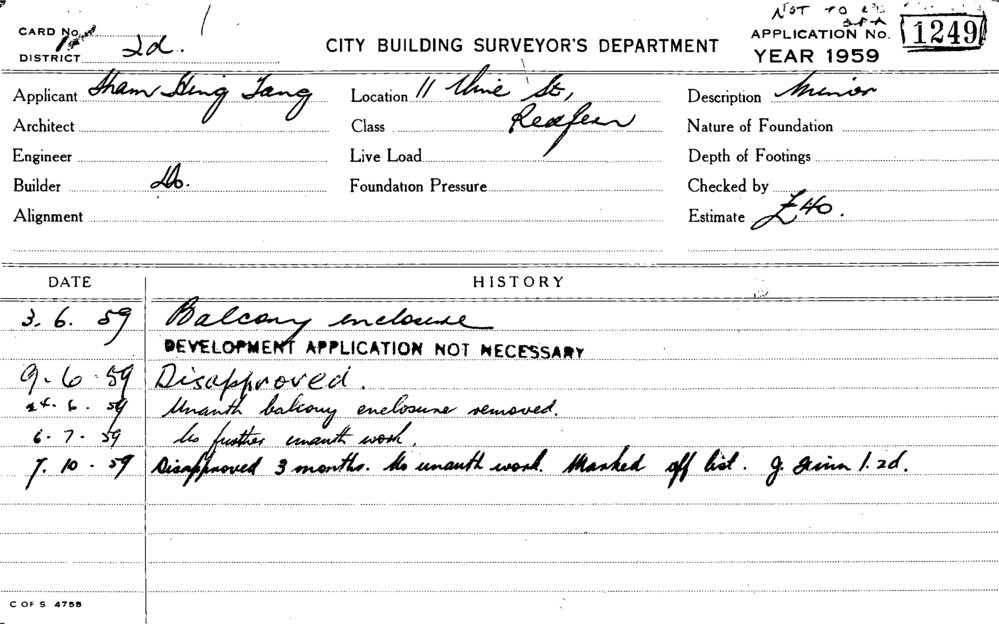 NOT TO
CARD No.
DISTRICT 2d.
CITY BUILDING SURVEYOR'S DEPARTMENT
APPLICATION No. 1249
YEAR 1959
Applicant Sham Hing Tang
Location 11 Vine St,
Description Minor
Architect
Class Redfern
Nature of Foundation
Engineer
Live Load
Depth of Footings
Builder Do.
Foundation Pressure
Checked by
Alignment
Estimate £40.
DATE HISTORY
3. 6. 59 Balcony enclosure
DEVELOPMENT APPLICATION NOT NECESSARY
9. 6. 59 Disapproved.
24. 6. 59 Unauth balcony enclosure removed.
6. 7. 59 No further unauth work.
7. 10. 59 Disapproved 3 months. No unauth work. Marked off list. J. 1. 2d.
C OF S 4758